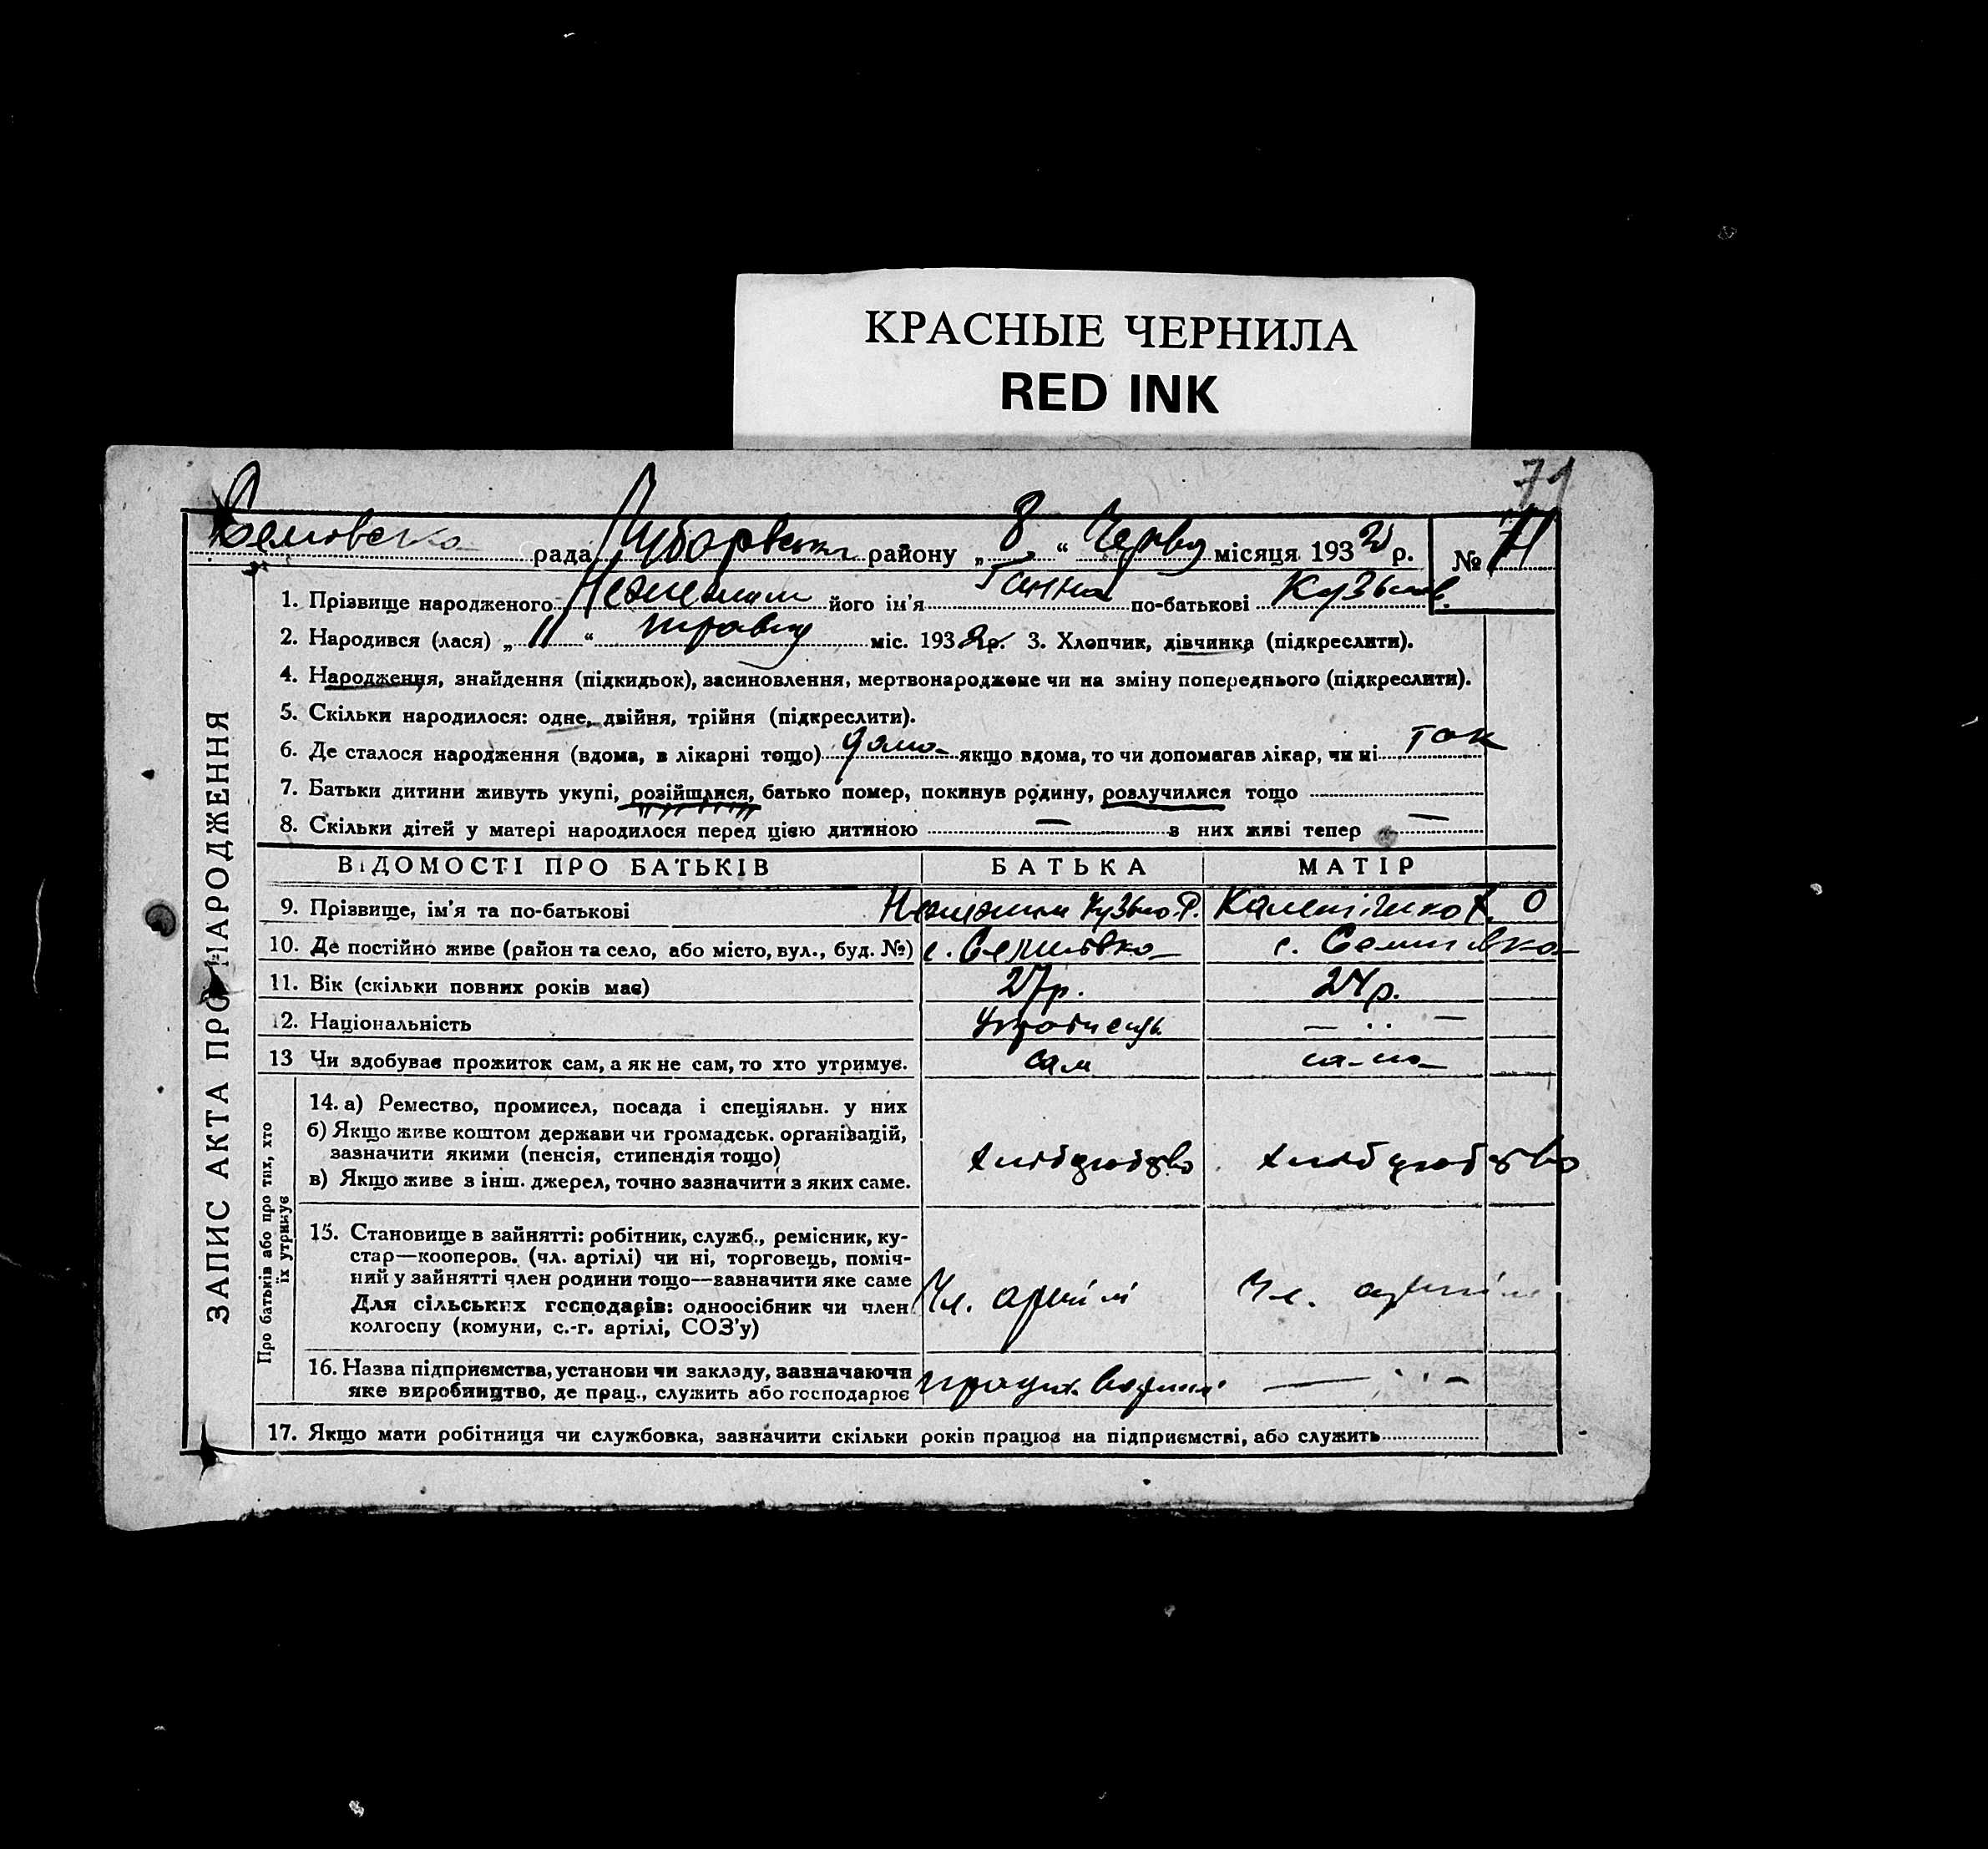 КРАСНЫЕ ЧЕРНИЛА
RED INK
71
рада Любарськ району „ 8 “ Червн місяця 1932 р. № 71
1. Прізвище народженого його ім'я Ганна по-батькові Кузьмів.
2. Народився (лася) „ 11 “ травня міс. 1932 р. 3. Хлопчик, дівчинка (підкреслити).
4. Народження, знайдення (підкидьок), засиновлення, мертвонароджене чи на зміну попереднього (підкреслити).
5. Скільки народилося: одне, двійня, трійня (підкреслити).
6. Де сталося народження (вдома, в лікарні тощо) дома якщо вдома, то чи допомагав лікар, чи ні так
7. Батьки дитини живуть укупі, розійшлися, батько помер, покинув родину, розлучилися тощо
8. Скільки дітей у матері народилося перед цією дитиною — в них живі тепер —
ВІДОМОСТІ ПРО БАТЬКІВ БАТЬКА МАТІР
9. Прізвище, ім'я та по-батькові Кузьма Р. 0
10. Де постійно живе (район та село, або місто, вул., буд. №) с. Семиівка с. Семиівка
11. Вік (скільки повних років має) 27р. 24р.
12. Національність українець — „ —
13 Чи здобуває прожиток сам, а як не сам, то хто утримує. сам са-ма
14. а) Ремество, промисел, посада і спеціяльн. у них
б) Якщо живе коштом держави чи громадськ. організацій,
зазначити якими (пенсія, стипендія тощо) хліборобство хліборобство
в) Якщо живе з інш. джерел, точно зазначити з яких саме.
15. Становище в зайнятті: робітник, служб., ремісник, ку-
стар—кооперов. (чл. артілі) чи ні, торговець, поміч-
ний у зайнятті член родини тощо—зазначити яке саме
Для сільських господарів: одноосібник чи член Чл. артілі Чл. артілі
колгоспу (комуни, с.-г. артілі, СОЗ'у)
16. Назва підприємства, установи чи закладу, зазначаючи
яке виробництво, де прац., служить або господарює — „ —
17. Якщо мати робітниця чи службовка, зазначити скільки років працює на підприємстві, або служить
ЗАПИС АКТА ПРО НАРОДЖЕННЯ
Про батьків або про тих, хто
їх утримує